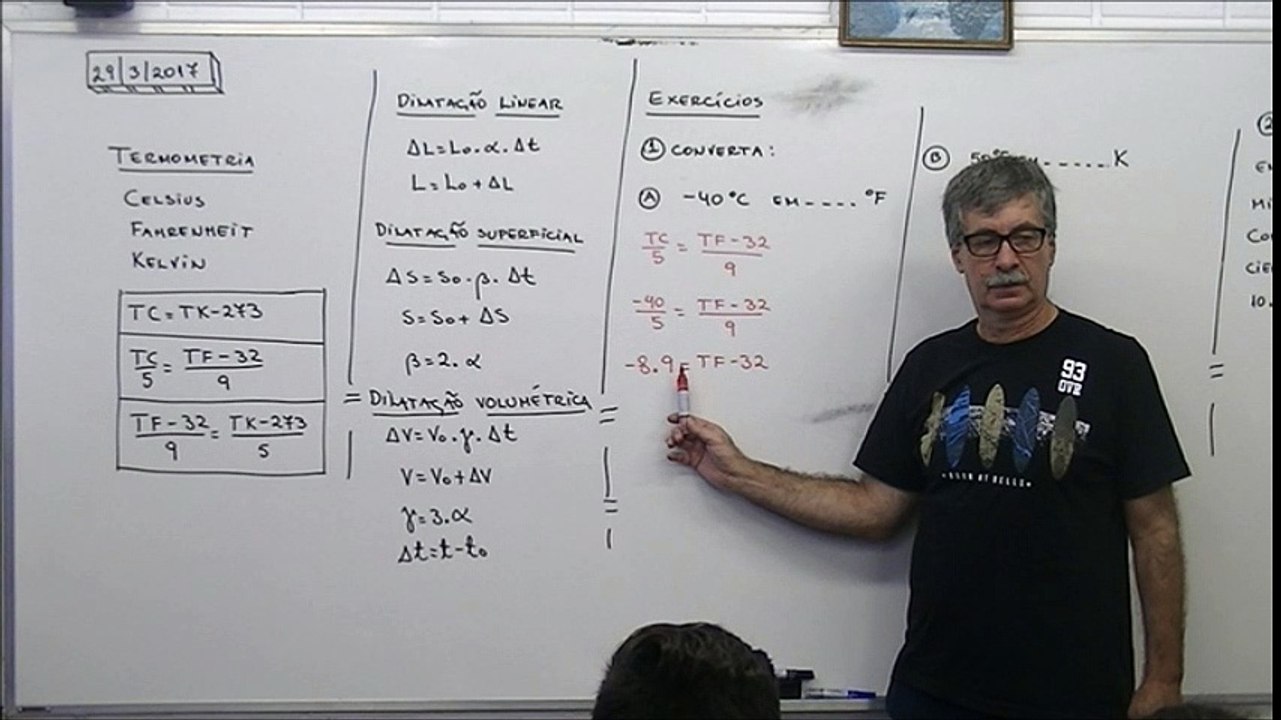 29/3/2017
TERMOMETRIA
CELSIUS
FAHRENHEIT
KELVIN
TC = TK-273
TC/5 = TF-32/9
TF-32/9 = TK-273/5
DILATAÇÃO LINEAR
ΔL=L₀.α.Δt
L=L₀+ΔL
DILATAÇÃO SUPERFICIAL
ΔS=S₀.β.Δt
S=S₀+ΔS
β=2.α
DILATAÇÃO VOLUMÉTRICA
ΔV=V₀.γ.Δt
V=V₀+ΔV
γ=3.α
Δt=t-t₀
EXERCÍCIOS
① CONVERTA:
Ⓐ -40°C EM----°F
TC/5 = TF-32/9
-40/5 = TF-32/9
-8.9=TF-32
Ⓑ 50°F EM-----K
10.
93
OVR